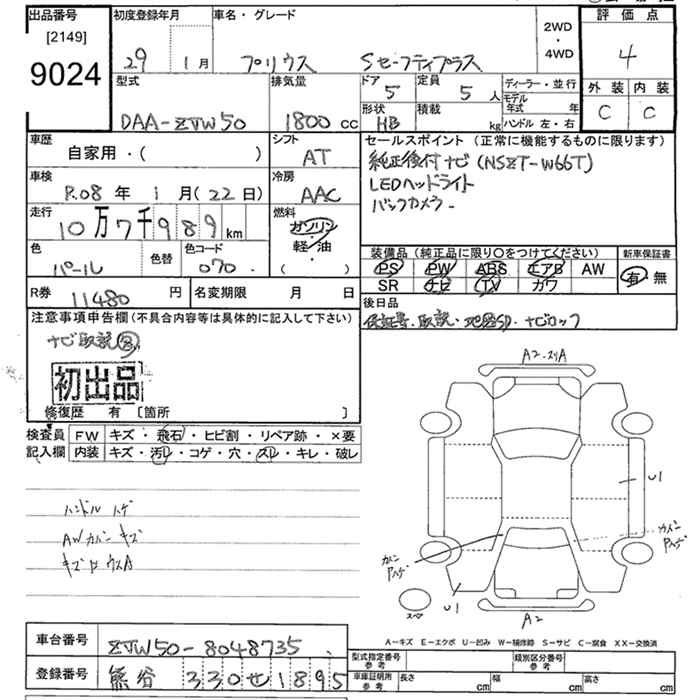 出品番号
[2149]
9024
初度登録年月
29 1月
車名・グレード
プリウス Sセーフティプラス
2WD
・
4WD
評価点
4
外装 内装
C C
型式
DAA-ZVW50
排気量
1800 CC
ドア
5
定員
5 人
形状
HB
積載
kg
ディーラー・並行
モデル
年式 年
ハンドル 左・右
車歴
自家用・( )
シフト
AT
車検
R.08 年 1 月 (22 日)
冷房
AAC
走行
10万7千989 km
燃料
ガソリン
軽・油
( )
色
パール
色替
色コード
070
R券
11480 円
名変期限 月 日
セールスポイント(正常に機能するものに限ります)
純正後付ナビ(NSZT-W66T)
LEDヘッドライト
バックカメラ
装備品(純正品に限り〇をつけてください)
PS PW ABS エアB AW
SR ナビ TV カワ
新車保証書
有 無
後日品
保証書・取説・地図SD・ナビロック
注意事項申告欄(不具合内容等は具体的に記入して下さい)
ナビ取説
初出品
修復歴 有 [箇所 ]
検査員
記入欄
FW キズ・飛石・ヒビ割・リペア跡・×要
内装 キズ・汚レ・コゲ・穴・スレ・キレ・破レ
ハンドル ハゲ
AWカバー キズ
A2・スリA
U1
U1
スペア
A2
A-キズ E-エクボ U-凹み W-補修跡 S-サビ C-腐食 XX-交換済
車台番号
ZVW50-8048735
登録番号
熊谷 330せ1895
型式指定番号
参考
類別区分番号
参考
車庫証明用
参考
長さ cm
幅 cm
高さ cm